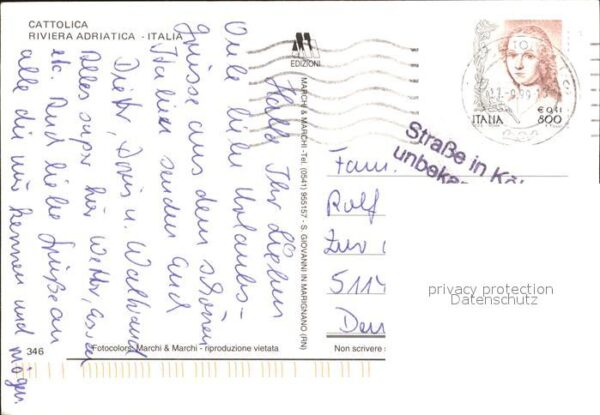 CATTOLICA
RIVIERA ADRIATICA - ITALIA
Hallo Ihr Lieben
Viele liebe Urlaubs-
grüsse aus dem schönen
Italien senden Euch
Dieter, Doris u. Waltraud
Alles super hier Wetter, Essen
etc. Auch liebe Grüße an
alle die wir kennen und mögen.
EDIZIONI
MARCHI & MARCHI - Tel. (0541) 955157 - S. GIOVANNI IN MARIGNANO (RN)
€ 0,41
ITALIA 800
Straße in Kö
unbeka
Fam.
Rolf
Zur
511
Deu
privacy protection
Datenschutz
346
Fotocolors: Marchi & Marchi - riproduzione vietata
Non scrivere